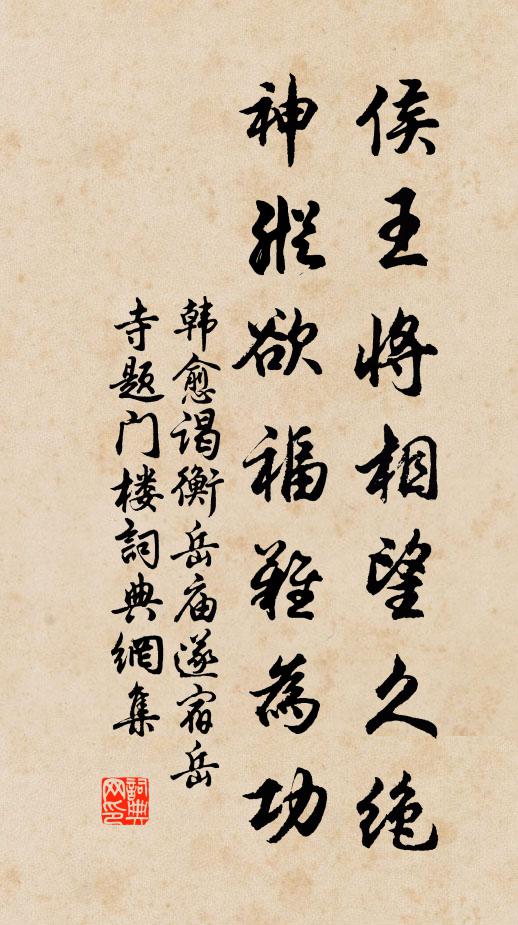 侯王将相望久绝
神纵欲福难為功
韩愈谒衡岳庙遂宿岳
寺题门楼詞典網集
詞典
网印